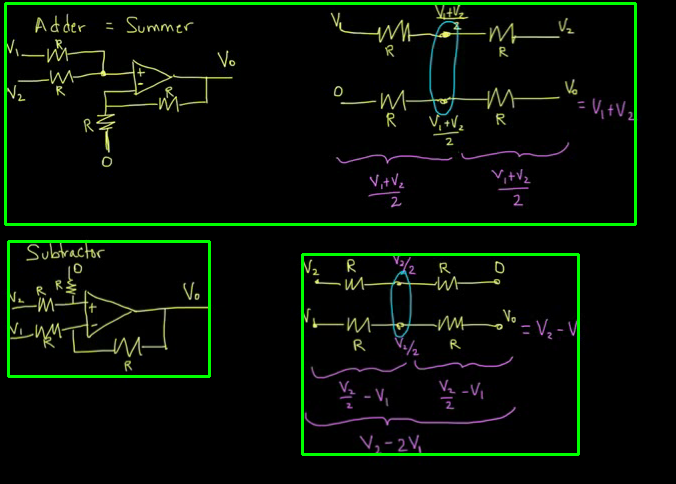 Adder = Summer
V₁ R
V₂ R
+
-
V₀
R
R
0
V₁ R (V₁+V₂)/2 R V₂
0 R (V₁+V₂)/2 R V₀ = V₁+V₂
(V₁+V₂)/2 (V₁+V₂)/2
Subtractor
0
R
V₂ R
V₁ R
+
-
V₀
R
V₂ R V₂/2 R 0
V R V₂/2 R V₀ = V₂-V
V₂/2 - V₁ V₂/2 - V₁
V₂-2V₁